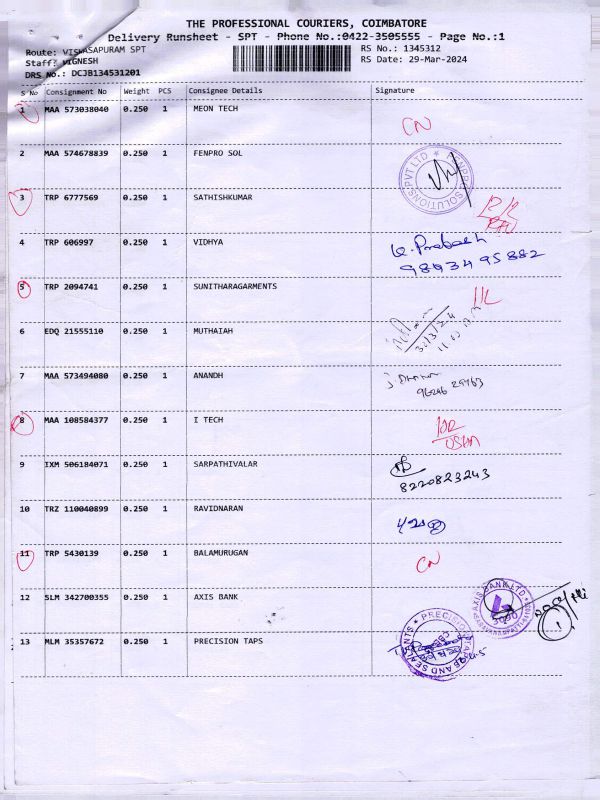 THE PROFESSIONAL COURIERS, COIMBATORE
Delivery Runsheet - SPT - Phone No.:0422-3505555 - Page No.:1
Route: VISWASAPURAM SPT
RS No.: 1345312
Staff: VIGNESH
RS Date: 29-Mar-2024
DRS No.: DCJB134531201
S No Consignment No Weight PCS Consignee Details Signature
1 MAA 573038040 0.250 1 MEON TECH CN
2 MAA 574678839 0.250 1 FENPRO SOL
3 TRP 6777569 0.250 1 SATHISHKUMAR
4 TRP 606997 0.250 1 VIDHYA
5 TRP 2094741 0.250 1 SUNITHARAGARMENTS
6 EDQ 21555110 0.250 1 MUTHAIAH
7 MAA 573494080 0.250 1 ANANDH
8 MAA 108584377 0.250 1 I TECH
9 IXM 506184071 0.250 1 SARPATHIVALAR 8220823243
10 TRZ 110040899 0.250 1 RAVIDNARAN
11 TRP 5430139 0.250 1 BALAMURUGAN CN
12 SLM 342700355 0.250 1 AXIS BANK AXIS BANK LTD
13 MLM 35357672 0.250 1 PRECISION TAPS